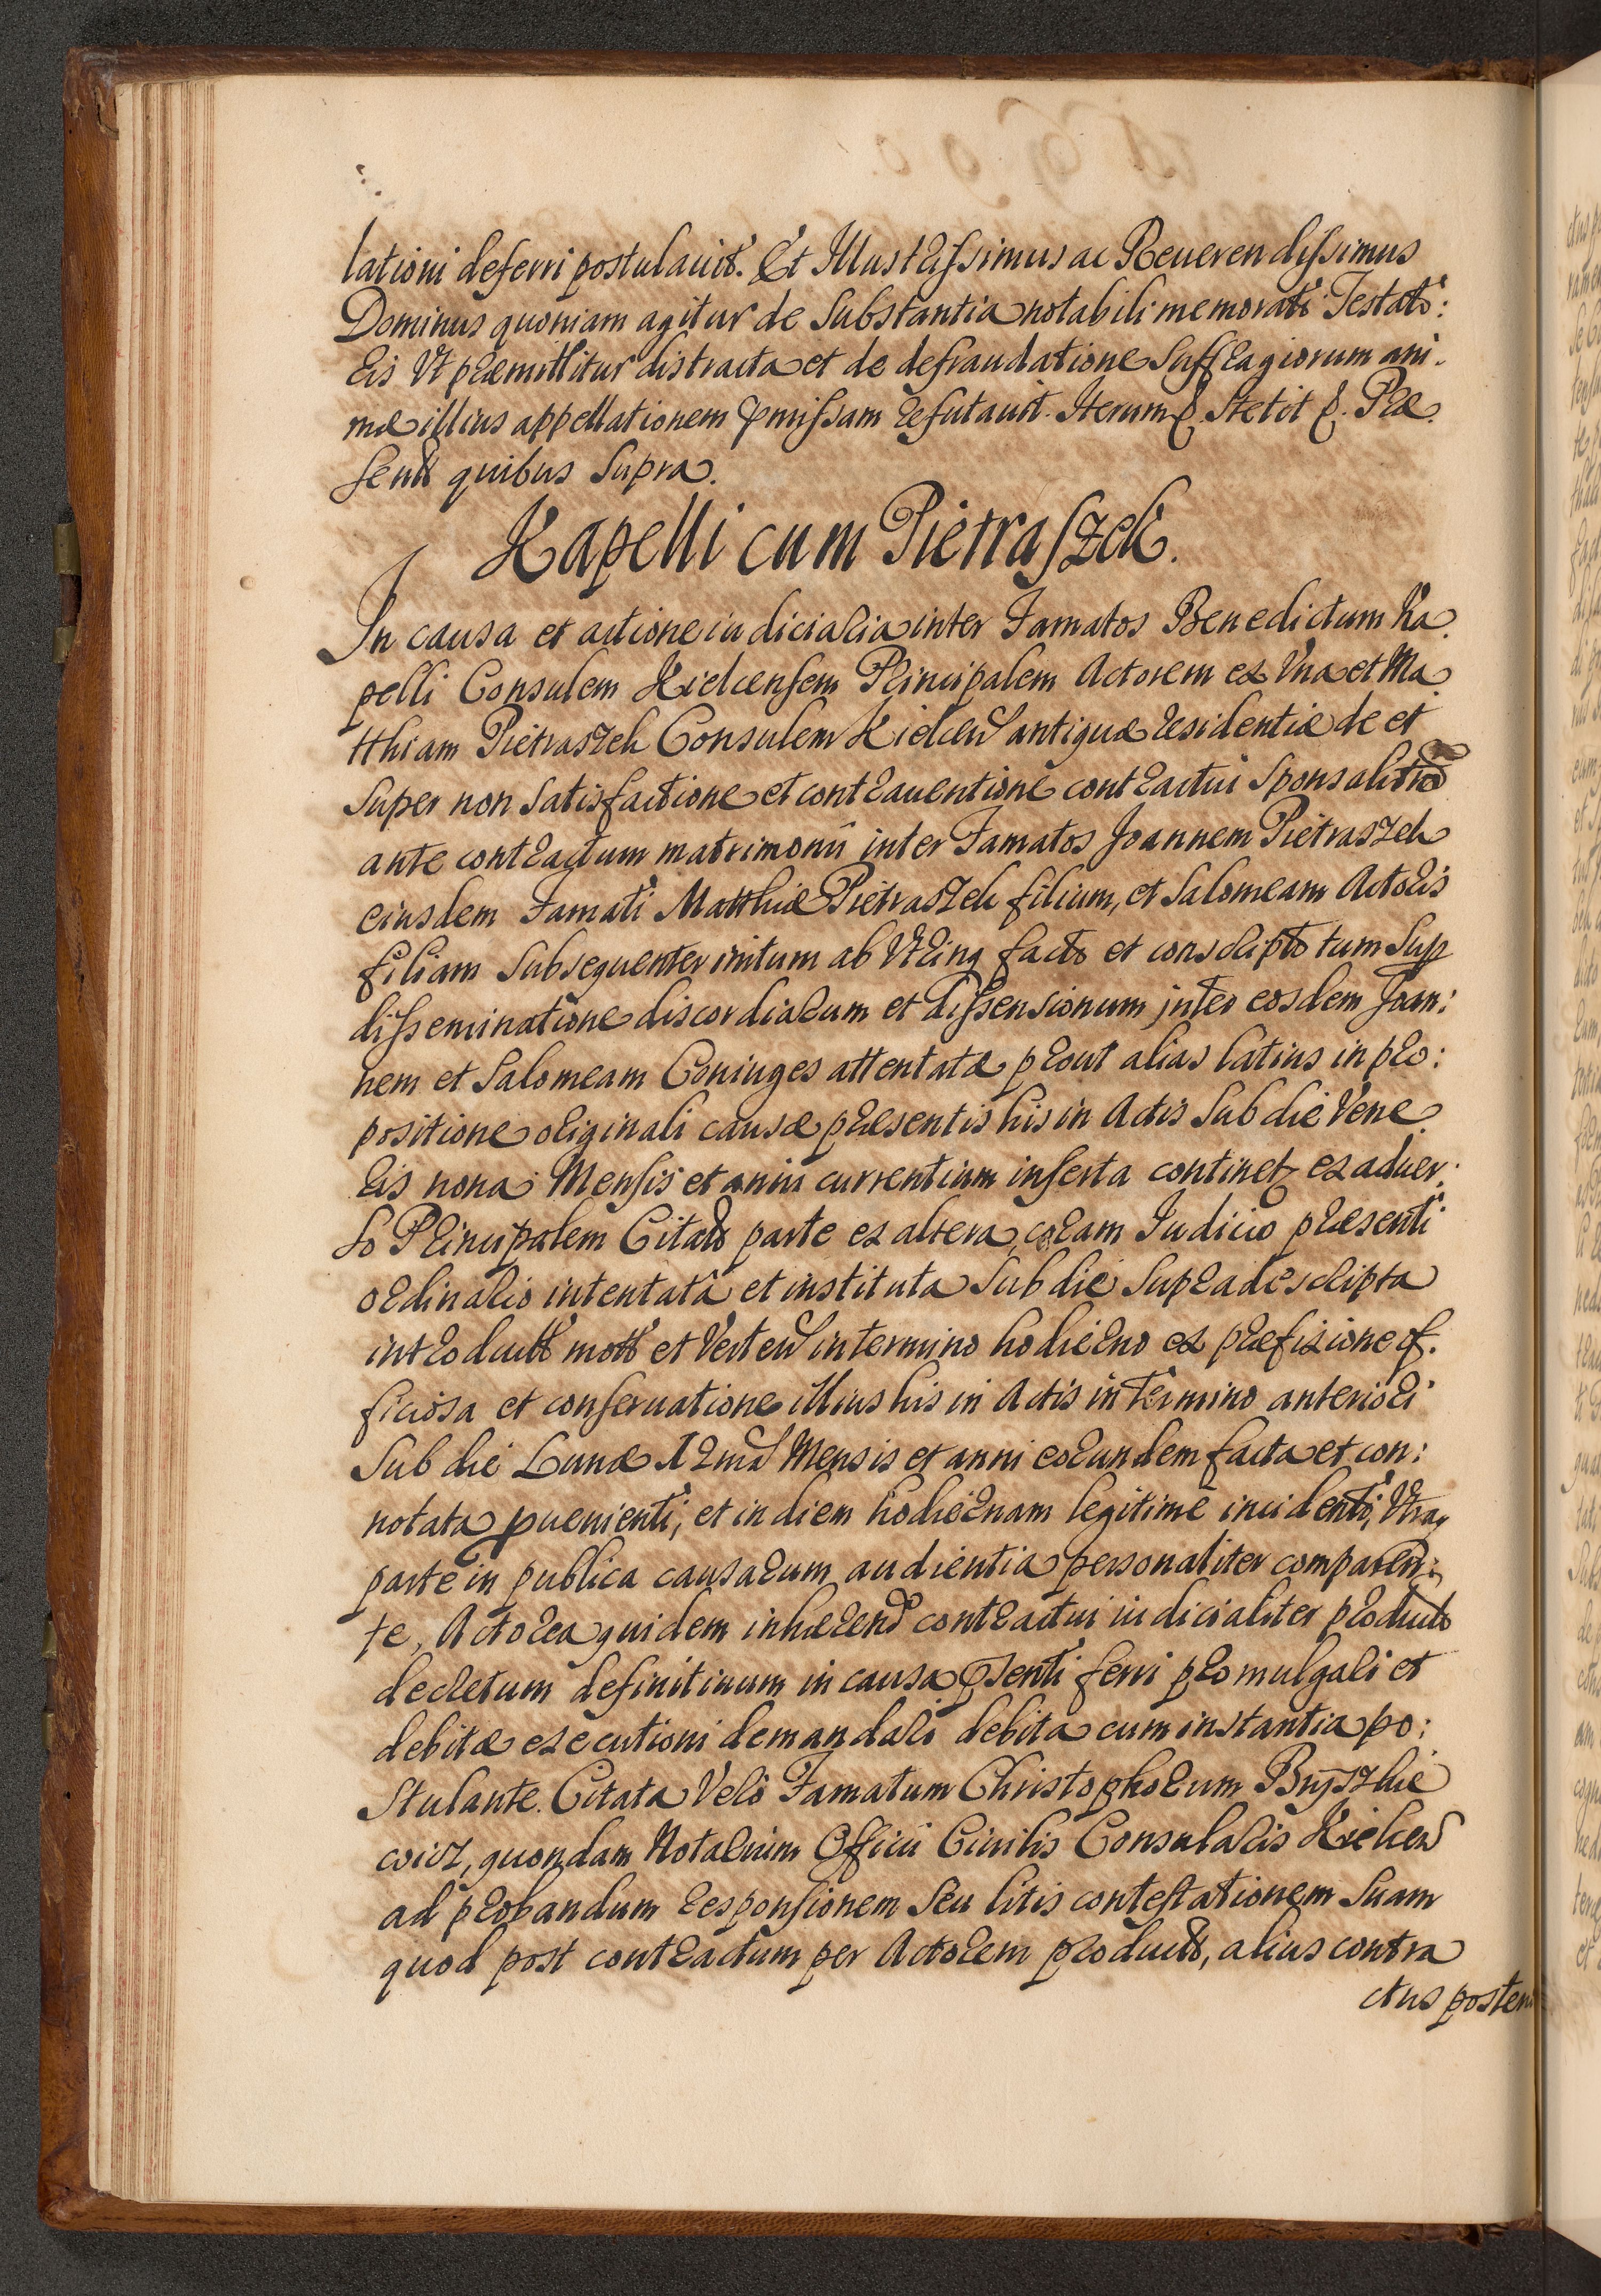 lationi deferri postulauit. Et Illustrissimus ac Reuerendissimus
Dominus quoniam agitur de Substantia notabili memorati Testato:
ris Vt præmittitur distracta et de defraudatione Suffragiorum ani.
mæ illius appellationem præmissam refutauit. Iterum Stetit Præ
Sentt quibus Supra.
Kapelli cum Pietraszek.
In causa et actione iudiciaria inter Famatos Benedictum Ka.
pelli Consulem Kielcensem Principalem Actorem ex Vna et Ma.
tthiam Pietraszek Consulem Kielcen antiquæ residentiæ de et
Super non Satisfactione et contrauentione contractui Sponsalitio
ante contractum matrimonii inter Famatos Joannem Pietraszek
eiusdem Famati Matthiæ Pietraszek filium, et Salomeam Actoris
filiam Subsequenter initum ab Vtrinq facto et conscripto tum Sup
disseminatione discordiarum et dissensionum inter eosdem Joan:
nem et Salomeam Coniuges attentatæ prout alias latius in pro:
positione originali causæ præsentis his in Actis Sub die Vene.
ris nona Mensis et anni currentium inserta continetz ex aduer:
So Principalem Citatt parte ex altera, coram Iudicio præsenti
ordinario intentata et instituta Sub die Supradescripta
introductt mott et Verten in termino hodierno ex præfixione of.
ficiosa et conseruatione illius his in Actis in Termino anteriori
Sub die Lunæ 12ma Mensis et anni eorundem facta et con:
notata puenienti, et in diem hodiernam legitime incidenti, Vtraq
parte in publica causarum audientia personaliter comparen:
te, Actorea quidem inhæren contractui iudicialiter producto
decretum definitiuum in causa psenti ferri promulgari et
debitæ executioni demandari debita cum instantia po:
Stulante. Citata Vero Famatum Christophorum Bryszkie
wicz, quondam Notarium Officii Ciuilis Consularis Kielcen
ad probandum responsionem Seu litis contestationem Suam
quod post contractum per Actorem productt, alius contra
ctus postem